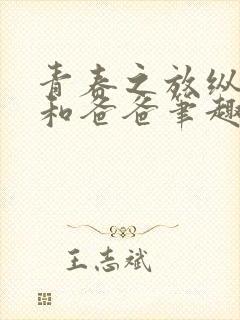 青春之放纵
和爸爸笔趣
王志斌